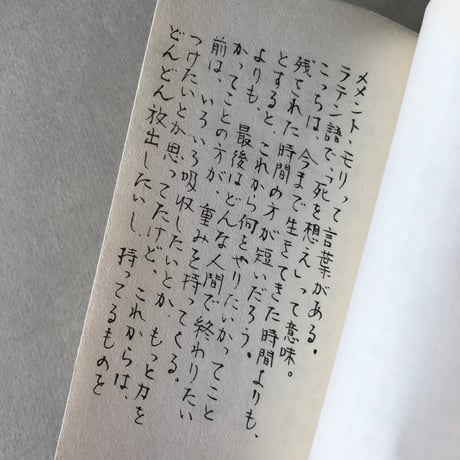 メメント・モリって言葉がある。
ラテン語で、「死を想え」って意味。
こっちは、今まで生きてきた時間よりも、
残された時間の方が短いだろう。
とすると、これから何をやりたいかってこと
よりも、最後はどんな人間で終わりたい
かってことの方が、重みを持ってくる。
前は、いろいろ吸収したいとか、もっと力を
つけたいとか思ってたけど、これからは、
どんどん放出したいし、持ってるものを